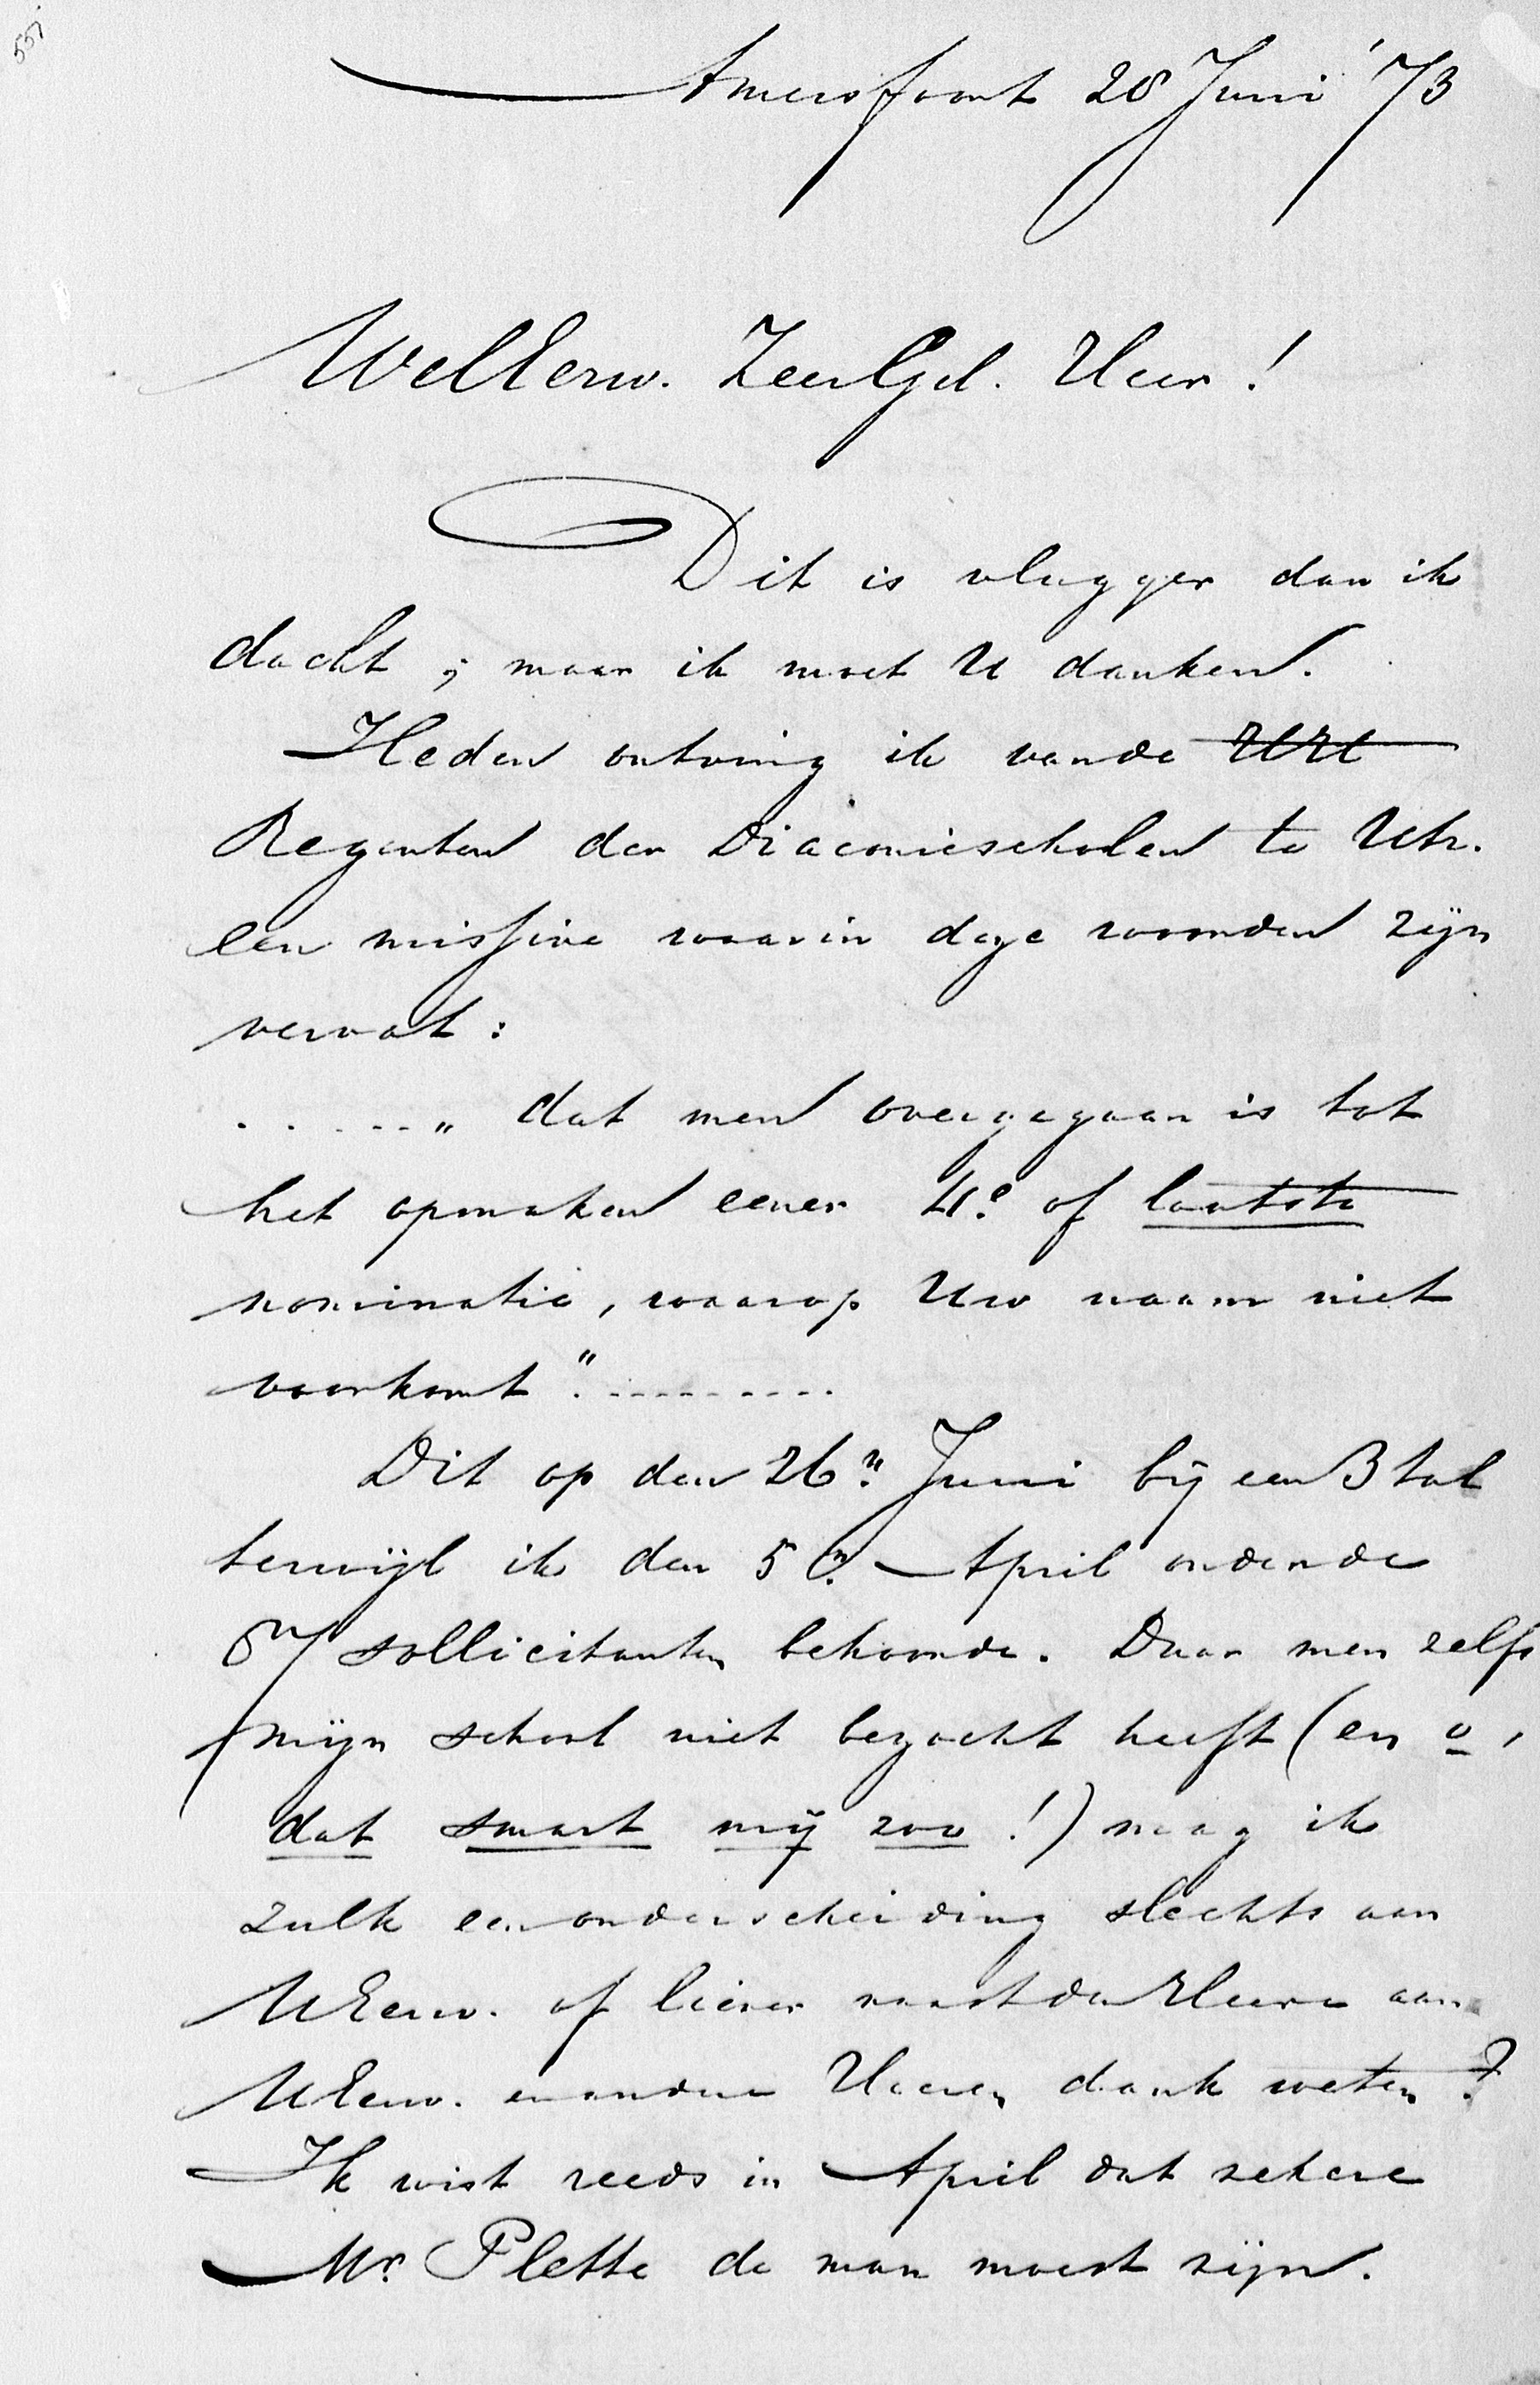 557
Amersfoort 28 Juni '73
WelEerw. ZeerGel. Heer!
Dit is vlugger dan ik
dacht; maar ik moet U danken.
Heden ontving ik van de
Regenten der Diaconiescholen te Utr.
een missive waarin deze woorden zijn
vervat:
. . . . . . „ dat men overgegaan is tot
het opmaken eener 4e of laatste
nominatie, waarop Uw naam niet
voorkomt". . . . . . . . . .
Dit op den 26n Juni bij een 3 tal
terwijl ik den 5n April onder de
sollicitanten behoorde. Daar men zelfs
mijn school niet bezocht heeft (en o,
dat smart mij zoo!) mag ik
zulk een onderscheiding slechts aan
UEerw. of liever naast den Heere aan
UEerw. en andere Heeren dank weten?
Ik wist reeds in April dat zekere
Mr. Plette de man moest zijn.